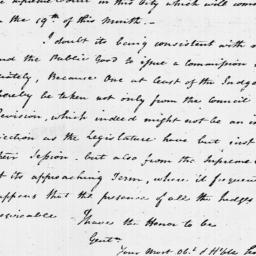 Supreme Court in this City which will com
the 19th of this Month.-
I doubt its being consistent with
the Public Good to issue a Commission
iately, Because One at least of the Judge
hereby be taken not only from the Council
Revision, which indeed might not be an in
iction as the Legislature have but just
their Session. but also from the Supreme
at its approaching Term, where it frequen
appens that the presence of all the Judges
requirable
I have the Honor to be
Gentn
Your Most Obt & Hble